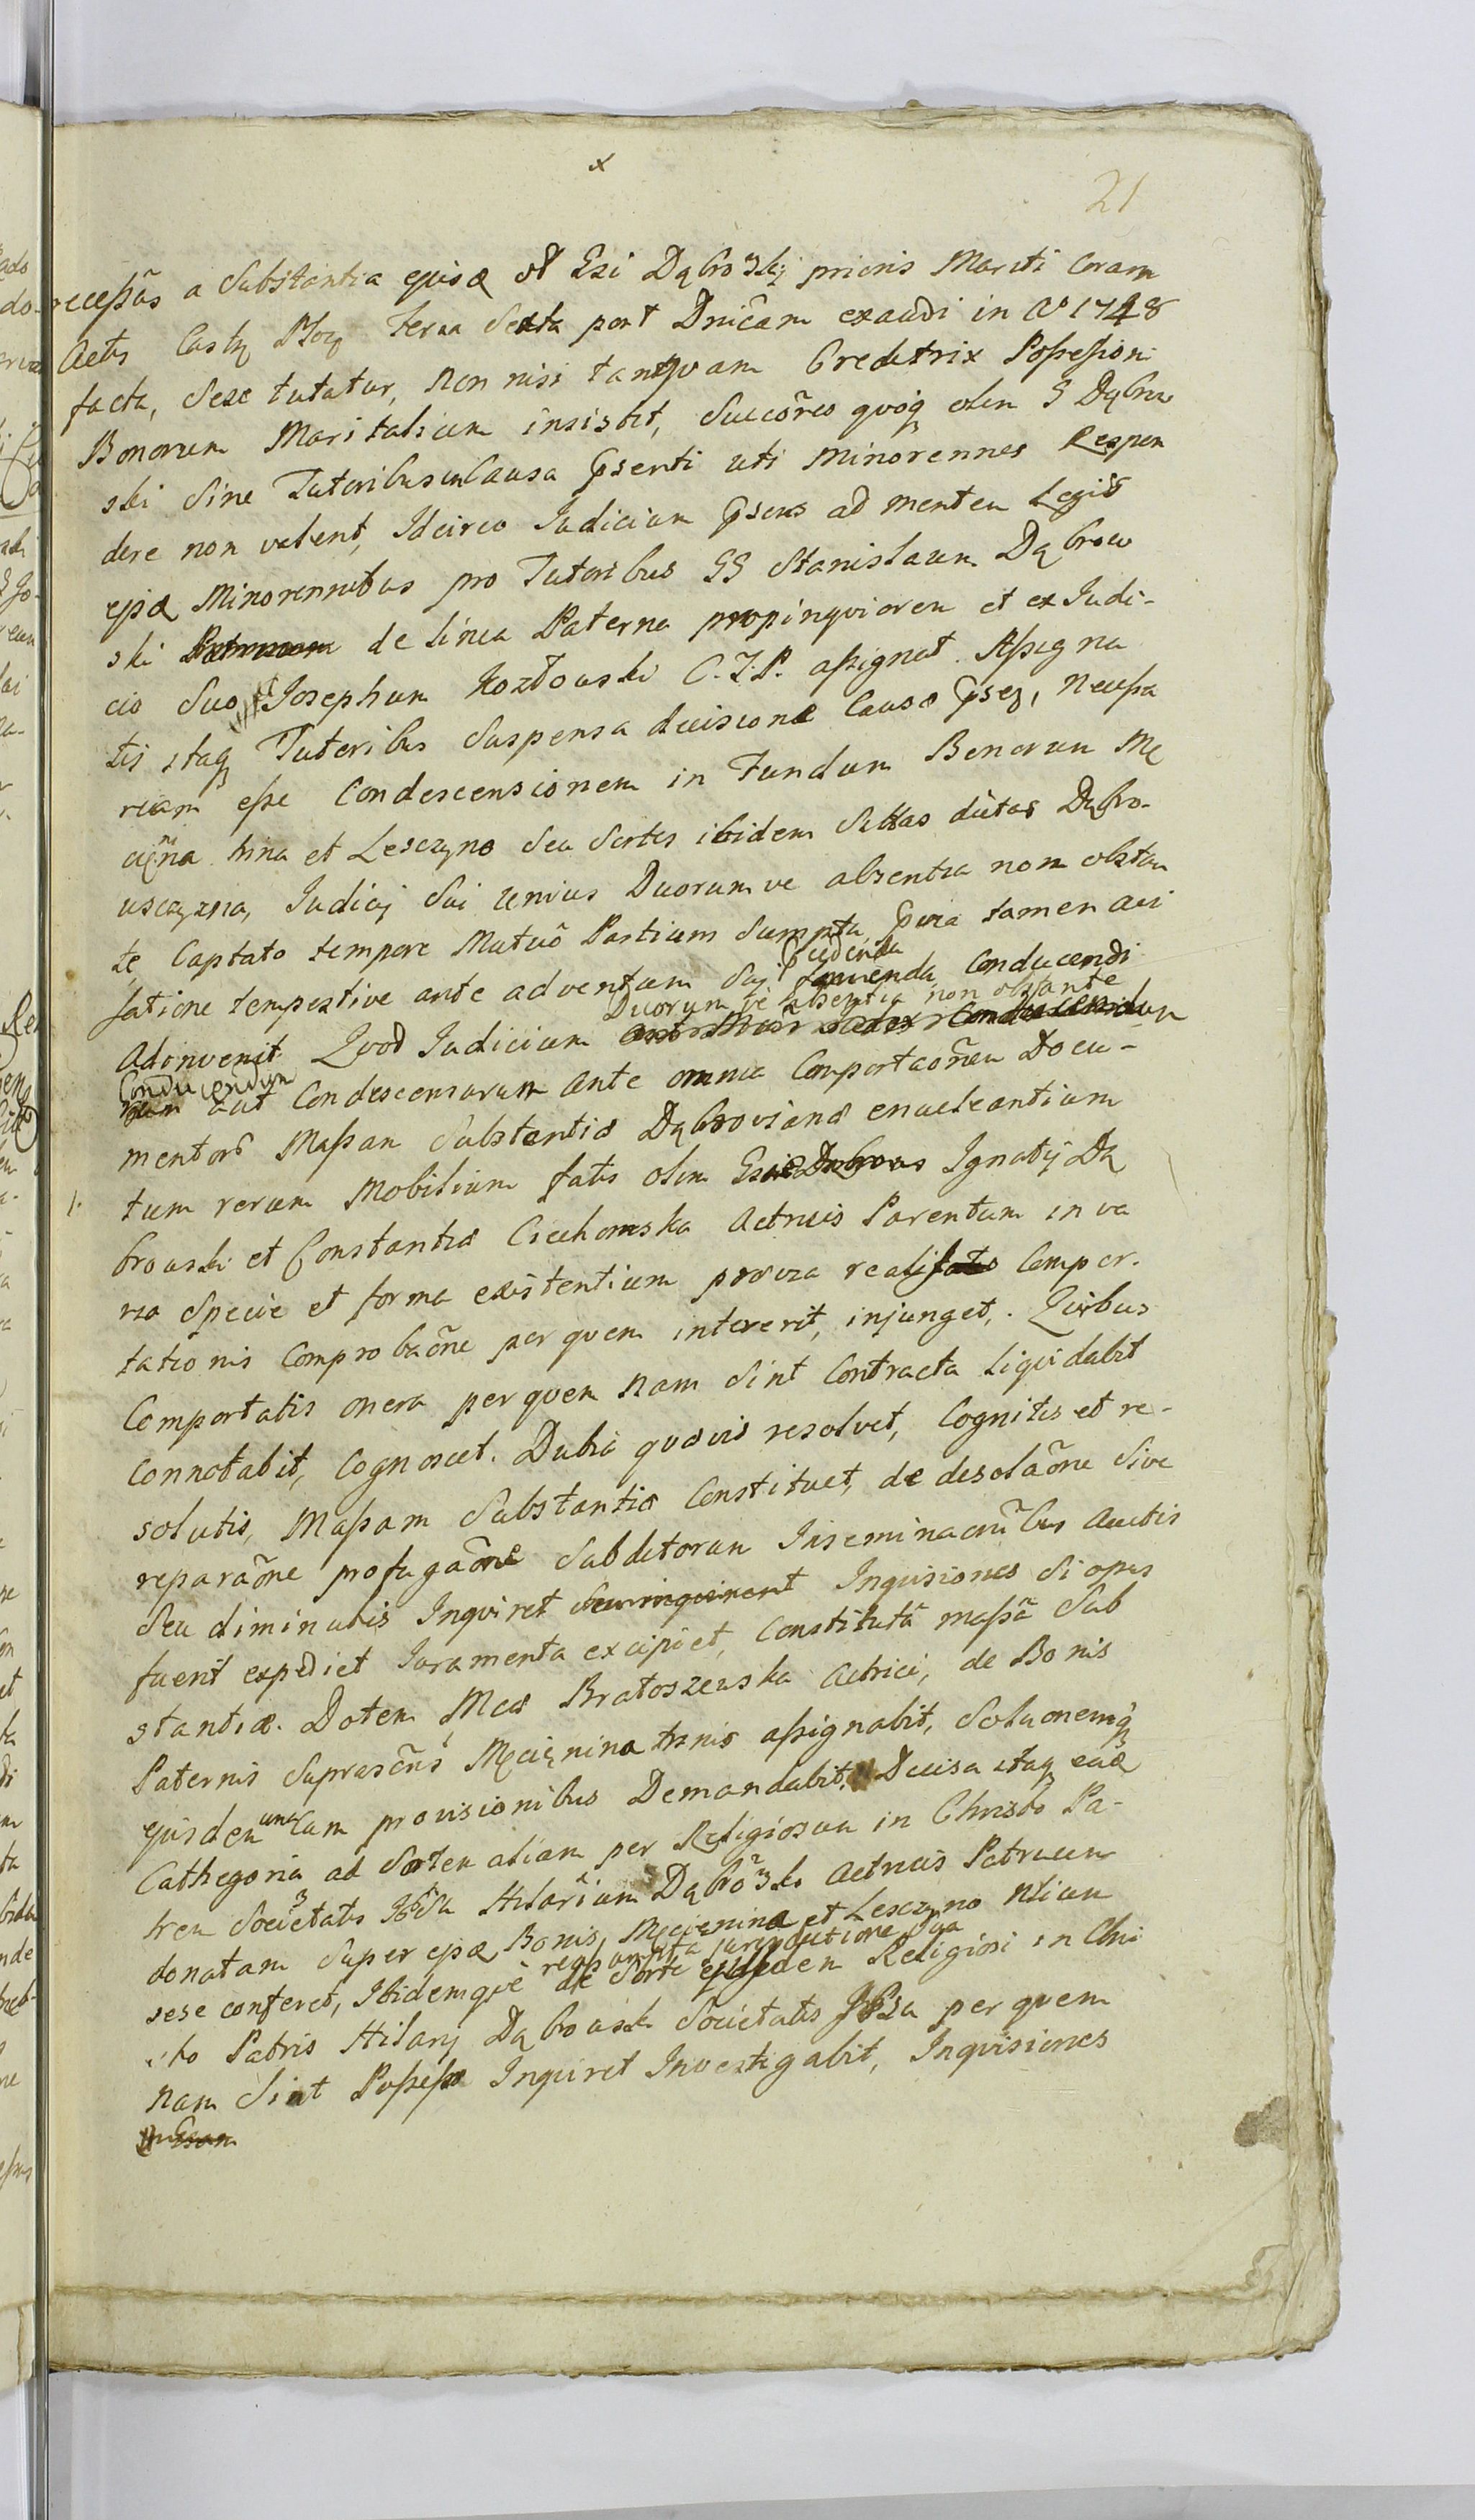 x
21
recessãs a Substantia ejusd. Gsi Dąbro3kj prioris Mariti Coram
Actis Castr. Ploc. Feria Sexta post Dnicam exaudi in A° 1748
facta, Sese tutatur, non nisi tanqvam Creditrix Possessioni
Bonorum Maritalium insistit, Succõres qvoq olim S Dąbrow
ski Sine Tutoribus in Causa Psenti uti Minorennes Respon
dere non valent, Idcirco Iudicium Psens ad mentem Legis
Minorennibus pro Tutoribus SS Stanislaum Dąbrow
ski de linea Paterna propinqviorem et ex Iudi-
cio Suo Josephum Kozłowski C.T.P. assignat. Assigna
tis itaq Tutoribus Suspensa decisione Causæ Necessa
riam esse Condescensionem in Fundum Bonorum Mę
cienina et Lesczyno Seu Sortes ibidem Sittas dictas Dąbro-
wsczyzna, Iudicij Sui unius Duorumve absentia non obstan
te, Captato tempore Mutuo Partium Sumpta, tamen avi
satione tempestive ante adventum Sui Conducendi
Adinvenit. Qvod Iudicium Duorum ve absentia non obstante
Conducendum aut Condescensurum ante omnia Comportaõnem Docu-
mentorũ Massam Substantiæ Dąbrovianæ enucleantium
1. tum rerum Mobilium fatis olim Ignatij Dą
browski et Constantiæ Ciechomska Actrucis Parentum in va
ria Specie et forma existentium prævia Compor-
tationis Comprobaõne per qvem intererit, injunget. Qvibus
Comportatis onera per qvem nam Sint Contracta Liqvidabit
Connotabit, Cognoscet. Dubia qvævis resolvet, Cognitis et re-
solutis, Massam Substantiæ Constituet, de desolaõne Sive
reparaõne profugaõne Subditorum Inseminaõnibus Auctis
Seu diminutis Inqviret Inqvisiones Si opus
fuerit expediet Iuramenta excipiet, Constitutã massã Sub
stantiæ. Dotem Mcæ Bratoszewska Actrici, de Bonis
Paternis Suprascris Męcienina assignabit, Soluonemq
ejusdem una Cum provisionibus Demandabit. Decisa itaq
Cathegoria ad Sortem aliam per Religiosum in Christo Pa-
trem Societatis Hilarium Dąbro3ki Actrucis Patruum
donatam Super Bonis Męcienina et Lesczyno
sese conferet, Ibidemqve reassumpta jurisdictione Sua de Sorte ejusdem Religiosi in Chri
sto Patris Hilarij Dąbrowski Societatis per qvem
nam Sint Possessæ Inqviret Investigabit, Inqvisiones